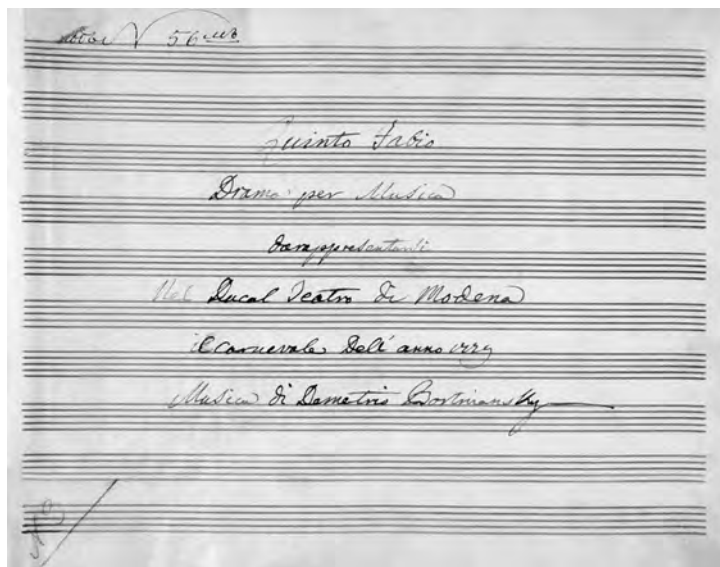 56
Quinto Fabio
Drama per Musica
darappresentarsi
Nel Ducal Teatro di Modena
il carnevale Dell' anno 1779
Musica di Demetrio Bortniansky